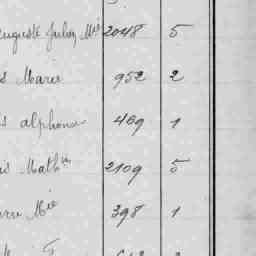 Auguste Julien Mie 2048 5
s Marie 952 2
s alphonse 469 1
is Math 2109 5
Mie 398 1